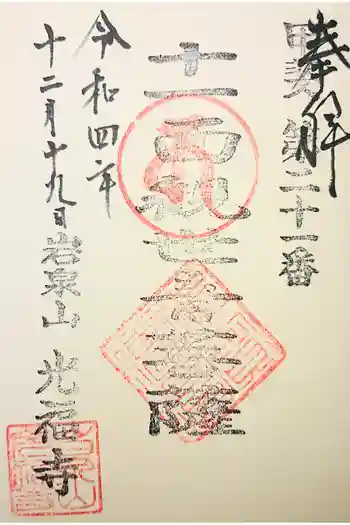 奉拝
甲斐第二十一番
十一面観世音菩薩
令和四年
十二月十九日
岩泉山 光福寺